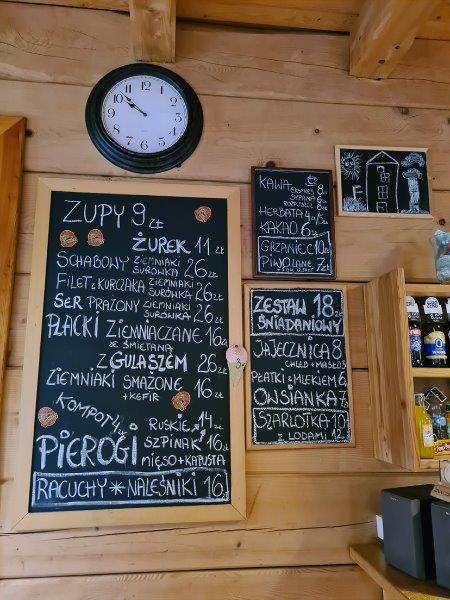 ZUPY 9 zł
ŻUREK 11 zł
SCHABOWY ZIEMNIAKI SURÓWKA 26 zł
FILET z KURCZAKA ZIEMNIAKI SURÓWKA 26 zł
SER PRAŻONY ZIEMNIAKI SURÓWKA 26 zł
PLACKI ZIEMNIACZANE 16 zł
ZE ŚMIETANĄ
Z GULASZEM 26 zł
ZIEMNIAKI SMAŻONE 16 zł
+ KEFIR
KOMPOTY
RUSKIE 14 zł
PIEROGI SZPINAK 16 zł
MIĘSO + KAPUSTA
RACUCHY * NALEŚNIKI 16
KAWA
EKSPRES 8
SYPANA 6
HERBATA
KAKAO 6
GRZANIEC 10
PIWO LANE 7
ZESTAW 18 zł
ŚNIADANIOWY
JAJECZNICA 8
CHLEB + MASŁO 3
PŁATKI z MLEKIEM 6
OWSIANKA 7
SZARLOTKA 10
z LODAMI 12
F
12 1 2 3 4 5 6 7 8 9 10 11